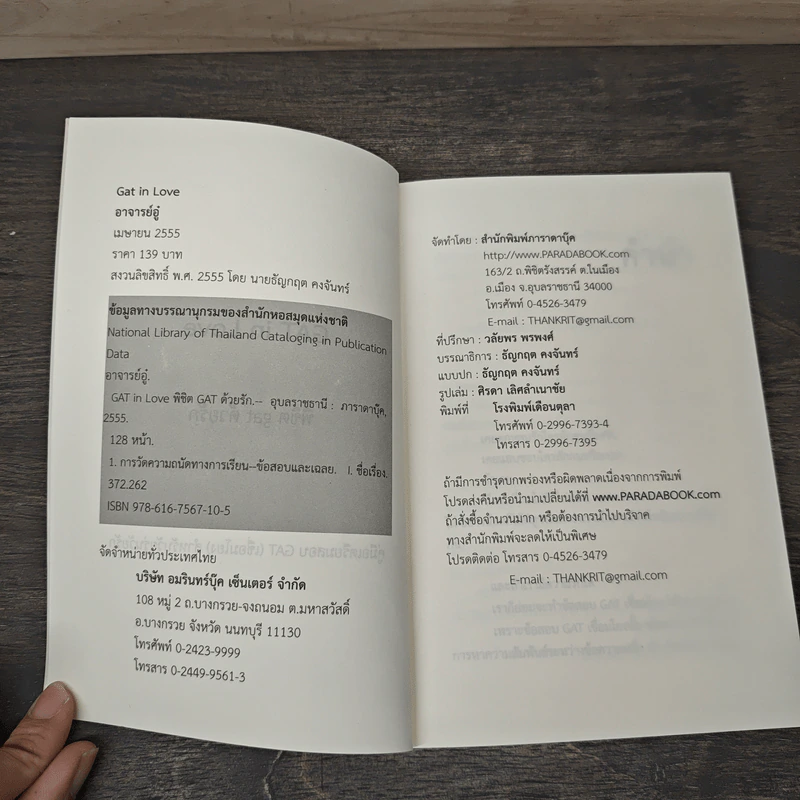 Gat in Love
อาจารย์อู๋
เมษายน 2555
ราคา 139 บาท
สงวนลิขสิทธิ์ พ.ศ. 2555 โดย นายธัญกฤต คงจันทร์
ข้อมูลทางบรรณานุกรมของสำนักหอสมุดแห่งชาติ
National Library of Thailand Cataloging in Publication
Data
อาจารย์อู๋.
GAT in Love พิชิต GAT ด้วยรัก.-- อุบลราชธานี : ภาราดาบุ๊ค,
2555.
128 หน้า.
1. การวัดความถนัดทางการเรียน--ข้อสอบและเฉลย. I. ชื่อเรื่อง.
372.262
ISBN 978-616-7567-10-5
จัดจำหน่ายทั่วประเทศไทย
บริษัท อมรินทร์บุ๊ค เซ็นเตอร์ จำกัด
108 หมู่ 2 ถ.บางกรวย-จงถนอม ต.มหาสวัสดิ์
อ.บางกรวย จังหวัด นนทบุรี 11130
โทรศัพท์ 0-2423-9999
โทรสาร 0-2449-9561-3
จัดทำโดย : สำนักพิมพ์ภาราดาบุ๊ค
http://www.PARADABOOK.com
163/2 ถ.พิชิตรังสรรค์ ต.ในเมือง
อ.เมือง จ.อุบลราชธานี 34000
โทรศัพท์ 0-4526-3479
E-mail : THANKRIT@gmail.com
ที่ปรึกษา : วลัยพร พรพงศ์
บรรณาธิการ : ธัญกฤต คงจันทร์
แบบปก : ธัญกฤต คงจันทร์
รูปเล่ม : ศิรดา เลิศลำเนาชัย
พิมพ์ที่ โรงพิมพ์เดือนตุลา
โทรศัพท์ 0-2996-7393-4
โทรสาร 0-2996-7395
ถ้ามีการชำรุดบกพร่องหรือผิดพลาดเนื่องจากการพิมพ์
โปรดส่งคืนหรือนำมาเปลี่ยนได้ที่ www.PARADABOOK.com
ถ้าสั่งซื้อจำนวนมาก หรือต้องการนำไปบริจาค
ทางสำนักพิมพ์จะลดให้เป็นพิเศษ
โปรดติดต่อ โทรสาร 0-4526-3479
E-mail : THANKRIT@gmail.com